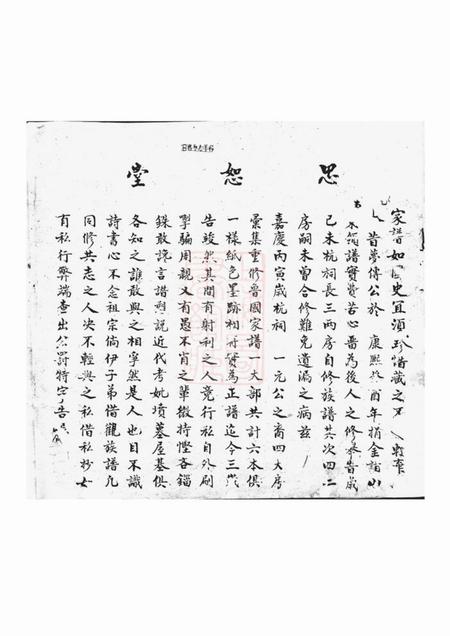 思恕堂
家譜如國史宜須珍惜藏之
昔夢傳公於康熙 酉年捐金 山
 寶費苦心善為後人之修 昔歲
己未杭祠長三兩房自修族譜共次四二
房嗣未曾合修難免遺漏之病茲
嘉慶丙寅歲杭祠一元公之裔四大房
彙集重修魯國家譜一大部共計六本俱
一樣紙色墨跡初 實為正譜迄今三 
告竣然其間有射利之人竟行私自外刷
 騙用親又有愚不肖之輩徵持慳吝錙
銖敢讒言譖朔說近代考妣墳墓屋基俱
各知之誰敢與之相寧然是人也目不識
詩書心不念祖宗倘伊子弟借觀族譜凡
同修共志之人決不輕與之私借私抄如
有私行弊端查出公罰特字告